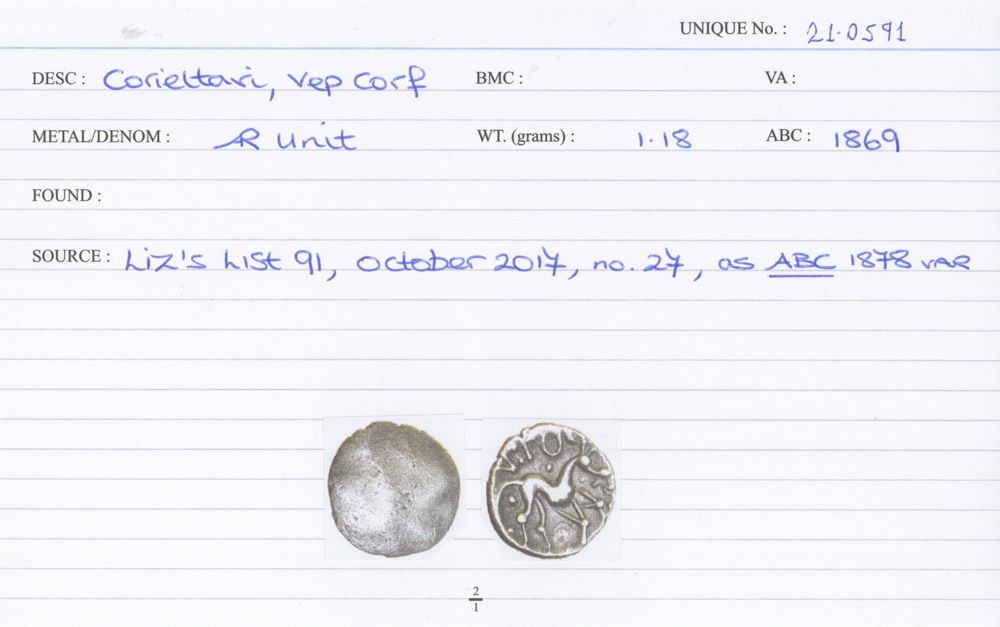 UNIQUE No. : 21-0591
DESC : Corieltavi, Vep Corf BMC : VA :
METAL/DENOM : AR Unit WT. (grams) : 1.18 ABC : 1869
FOUND :
SOURCE : Liz's List 91, October 2017, no. 27, as ABC 1878 VAR
2
1